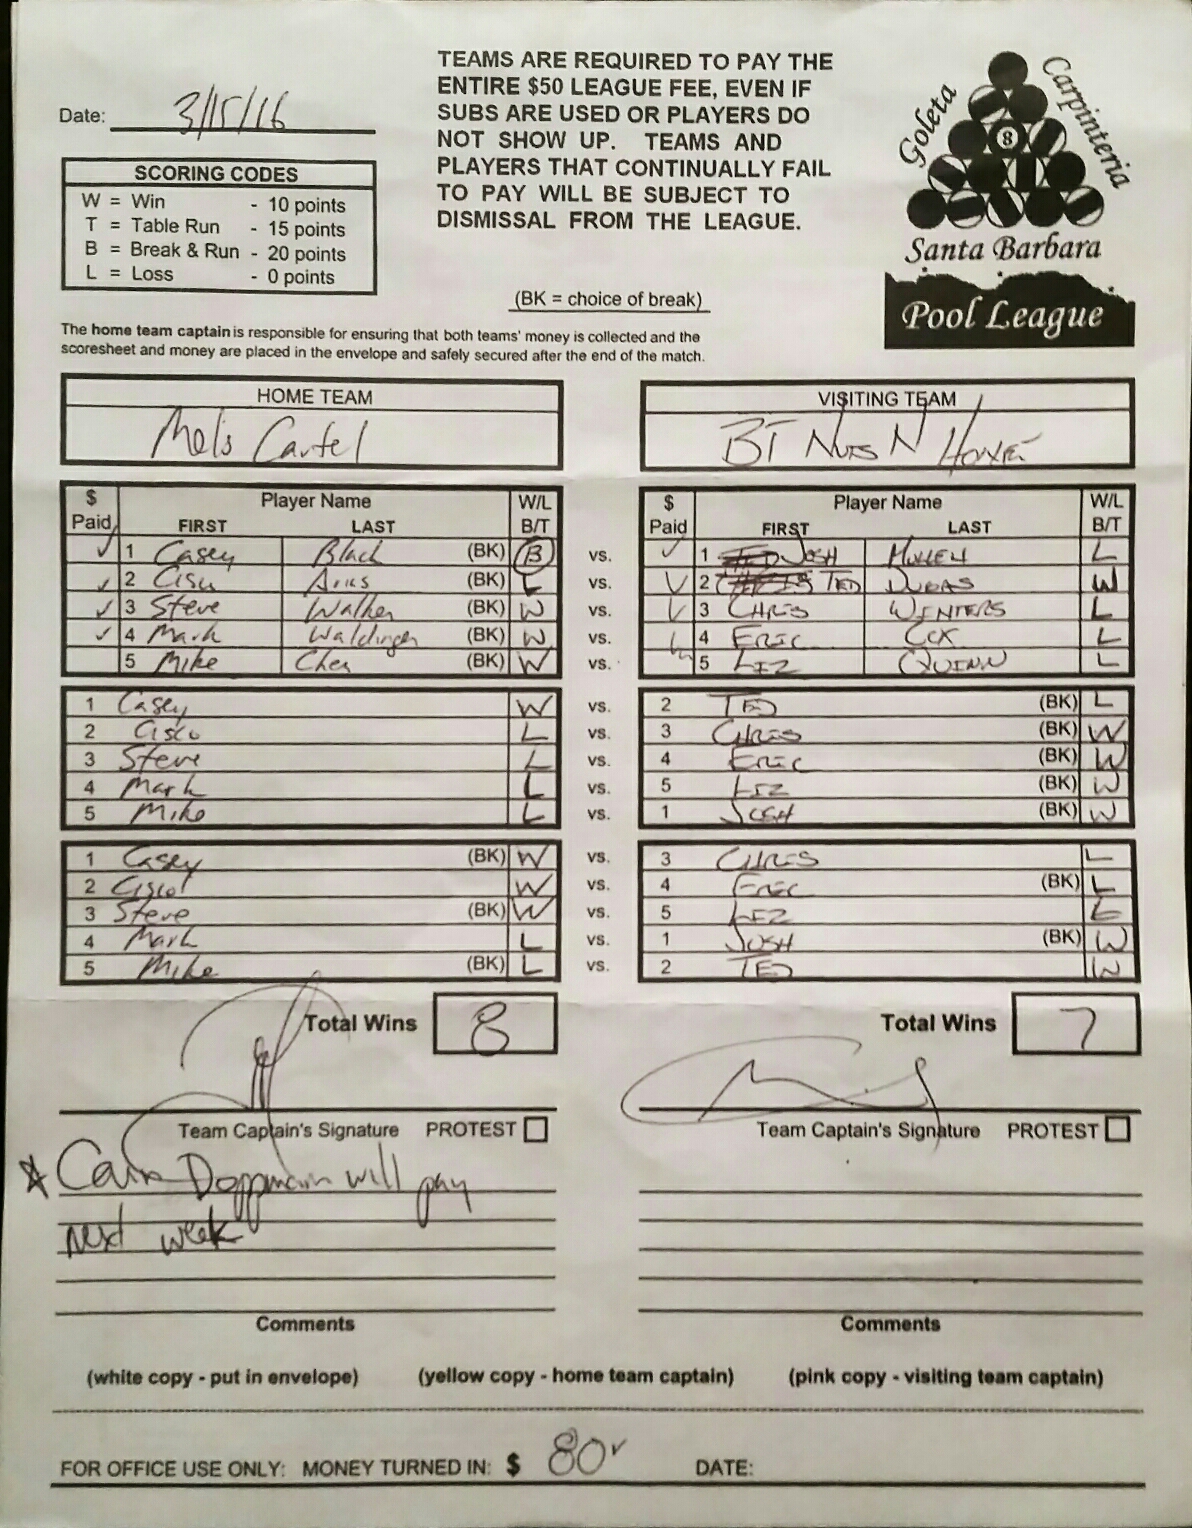 Date: 3/15/16
TEAMS ARE REQUIRED TO PAY THE
ENTIRE $50 LEAGUE FEE, EVEN IF
SUBS ARE USED OR PLAYERS DO
NOT SHOW UP. TEAMS AND
PLAYERS THAT CONTINUALLY FAIL
TO PAY WILL BE SUBJECT TO
DISMISSAL FROM THE LEAGUE.
Goleta Carpinteria
8
Santa Barbara
Pool League
SCORING CODES
W = Win - 10 points
T = Table Run - 15 points
B = Break & Run - 20 points
L = Loss - 0 points
(BK = choice of break)
The home team captain is responsible for ensuring that both teams' money is collected and the
scoresheet and money are placed in the envelope and safely secured after the end of the match.
HOME TEAM VISITING TEAM
Mel's Cartel BT Nuts N
$ Paid Player Name FIRST LAST W/L B/T $ Paid Player Name FIRST LAST W/L B/T
✓ 1 Casey Black (BK) B vs. ✓ 1 JOSH MULLEN L
✓ 2 Cisco Arias (BK) L vs. ✓ 2 TED DUBAS W
✓ 3 Steve Walker (BK) W vs. ✓ 3 CHRIS WINTERS L
✓ 4 Mark Waldinger (BK) W vs. 4 ERIC COX L
5 Mike Chea (BK) W vs. 5 LIZ QUINN L
1 Casey W vs. 2 TED (BK) L
2 Cisco L vs. 3 CHRIS (BK) W
3 Steve L vs. 4 ERIC (BK) W
4 Mark L vs. 5 LIZ (BK) W
5 Mike L vs. 1 JOSH (BK) W
1 Casey (BK) W vs. 3 CHRIS L
2 Cisco W vs. 4 ERIC (BK) L
3 Steve (BK) W vs. 5 LIZ L
4 Mark L vs. 1 JOSH (BK) W
5 Mike (BK) L vs. 2 TED W
Total Wins 8 Total Wins 7
Team Captain's Signature PROTEST Team Captain's Signature PROTEST
Doppmann will pay
next week
Comments Comments
(white copy - put in envelope) (yellow copy - home team captain) (pink copy - visiting team captain)
FOR OFFICE USE ONLY: MONEY TURNED IN: $ 80 DATE: